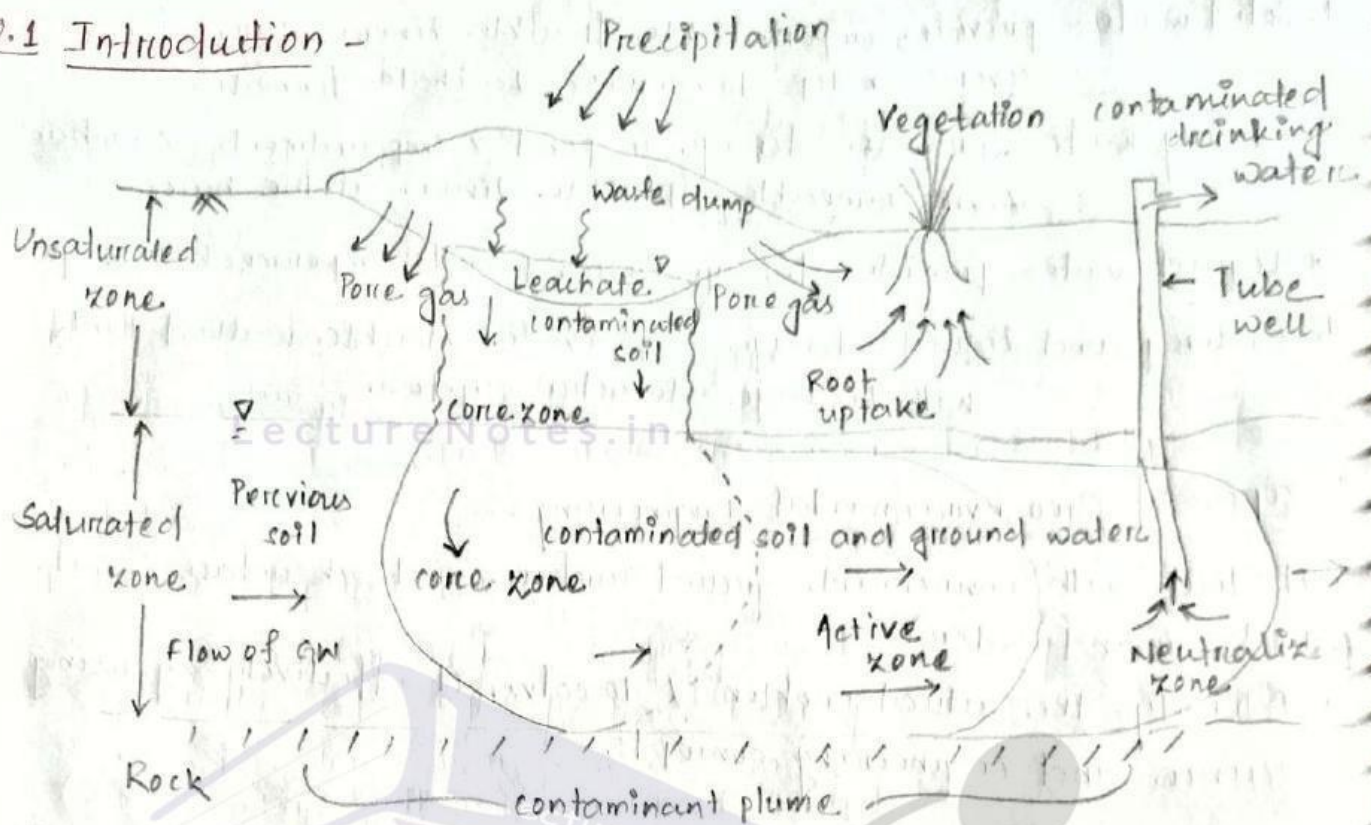 .1 Introduction -
Precipitation
Vegetation
contaminated
drinking
water
waste dump
Unsaturated
zone
Pore gas
Leachate
Pore gas
contaminated
soil
Tube
well
Root
uptake
core zone
LectureNotes.in
Saturated
zone
Pervious
soil
contaminated soil and ground water
core zone
Flow of GW
Active
zone
Neutraliz.
zone
Rock
contaminant plume